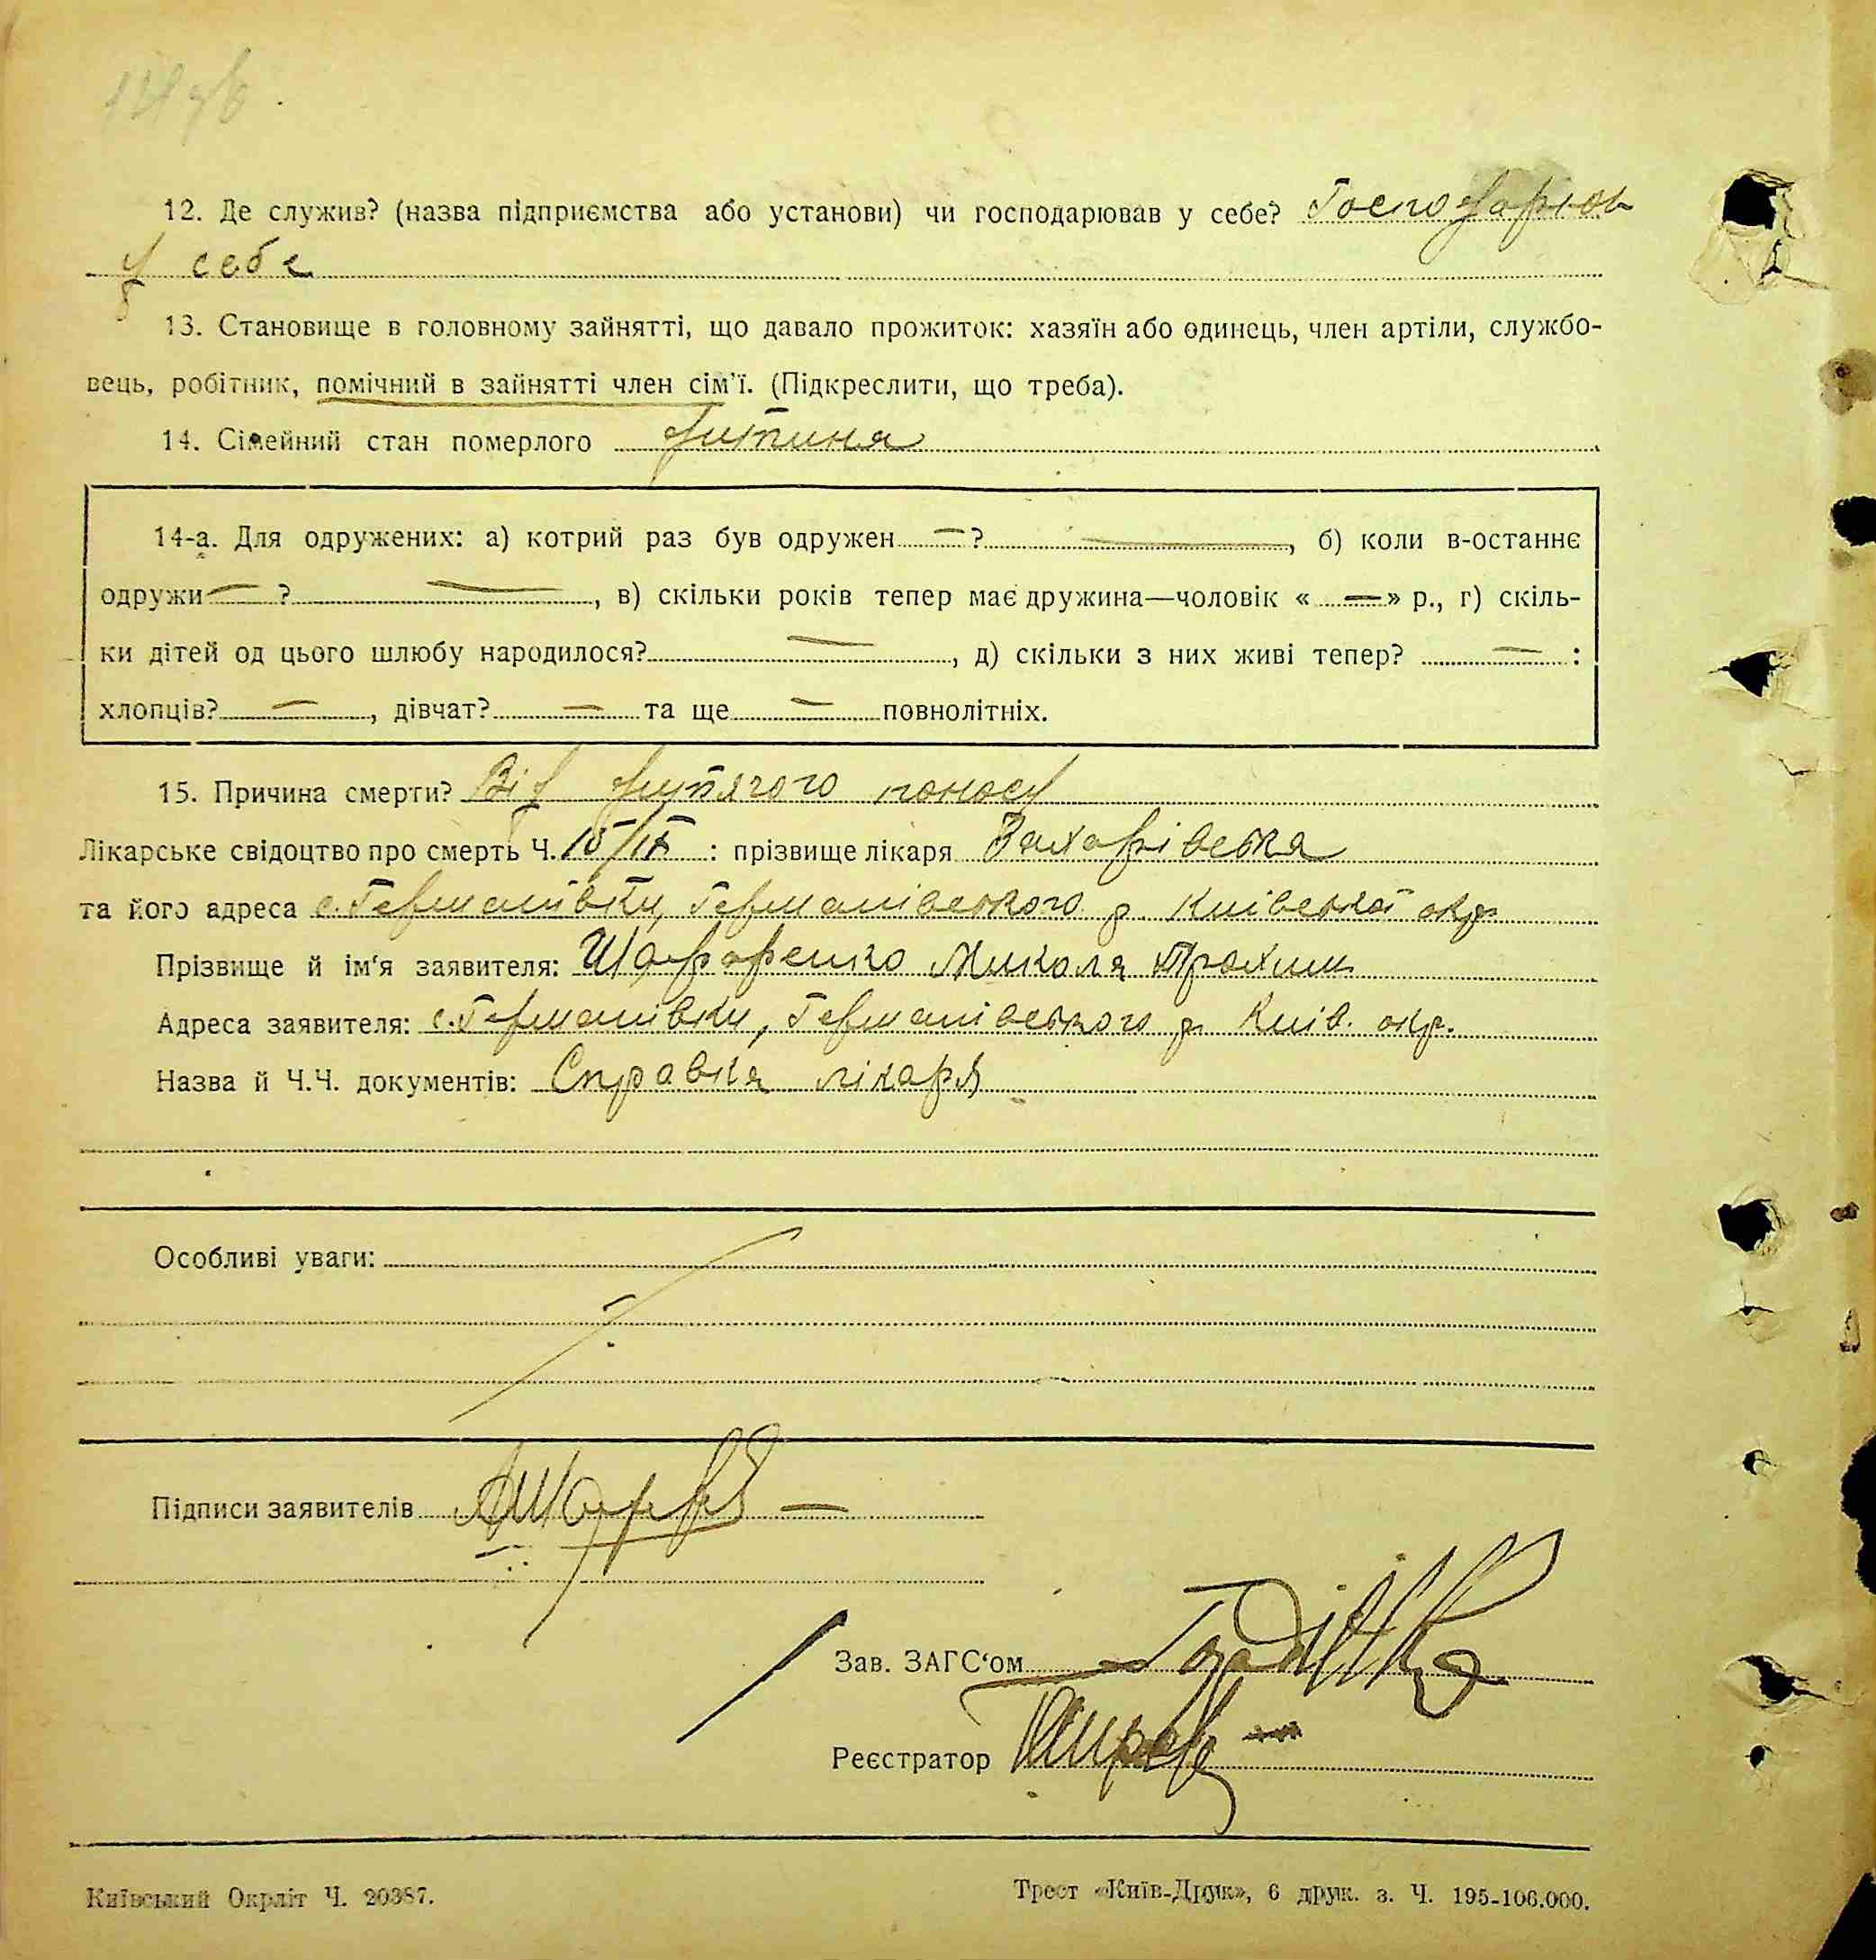 12. Де служив? (назва підприємства або установи) чи господарював у себе? Господарюв
у себе
13. Становище в головному зайнятті, що давало прожиток: хазяїн або одинець, член артіли, службо-
вець, робітник, помічний в зайнятті член сім'ї. (Підкреслити, що треба).
14. Сімейний стан померлого дитина
14-а. Для одружених: а) котрий раз був одружен — ? —, б) коли в-останнє
одружи — ? —, в) скільки років тепер має дружина—чоловік « — » р., г) скіль-
ки дітей од цього шлюбу народилося? —, д) скільки з них живі тепер? — :
хлопців? —, дівчат? — та ще — повнолітніх.
15. Причина смерти? Від дитячого поносу
Лікарське свідоцтво про смерть Ч. 15/IX : прізвище лікаря Захарівська
та його адреса с. Германівки, Германівського р. Київської окр.
Прізвище й ім'я заявителя: Шафаренко Микола
Адреса заявителя: с. Германівки, Германівського р. Київ. окр.
Назва й Ч.Ч. документів: Справка лікаря
Особливі уваги:
Підписи заявителів
Зав. ЗАГС'ом
Реєстратор
Київський Окрліт Ч. 20387.
Трест «Київ-Друк», 6 друк. з. Ч. 195-106.000.